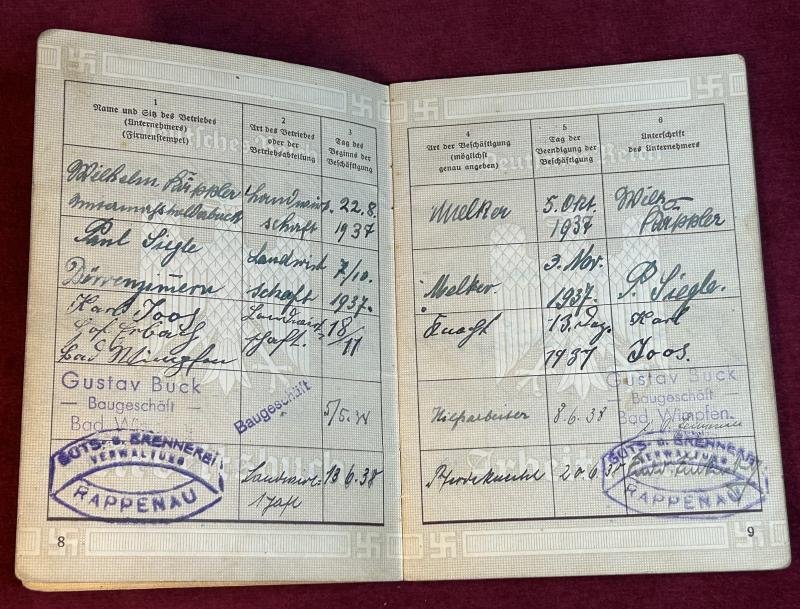 1
Name und Sitz des Betriebes
(Unternehmers)
(Firmenstempel)
2
Art des Betriebes
oder der
Betriebsabteilung
3
Tag des
Beginns der
Beschäftigung
Wilhelm Käppler
Landwirt-
schaft
22.8.
1937
Paul Siegle
Dörrenzimmern
Landwirt
schaft
7/10.
1937.
Karl Joos
Hof Erbach
Bad Wimpfen
Landwirt
schaft.
18/
11
Gustav Buck
— Baugeschäft —
Bad Wimpfen
Baugeschäft
5/5.
GUTS- u. BRENNEREI
VERWALTUNG
RAPPENAU
Landwirt-
schaft
6.38
Arbeitsbuch
8
4
Art der Beschäftigung
(möglichst
genau angeben)
5
Tag der
Beendigung der
Beschäftigung
6
Unterschrift
des Unternehmers
Deutsches Reich
Melker
5. Okt.
1937
Wilh.
Käppler
Melker.
3. Nov.
1937.
P. Siegle.
Knecht
13. Dez.
1937
Karl
Joos.
Hilfsarbeiter
8.6.38
Gustav Buck
— Baugeschäft —
Bad Wimpfen.
Pferdeknecht
20.6.38
GUTS- u. BRENNEREI
VERWALTUNG
RAPPENAU
9